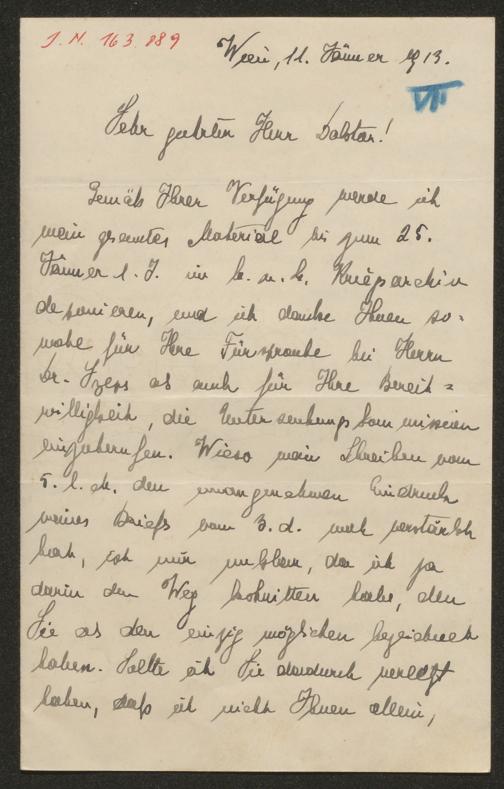 J. N. 163.889
Wien, 11. Jänner 1913.
VII
Sehr geehrter Herr Doktor!
Gemäß Ihrer Verfügung werde ich
mein gesamtes Material bis zum 25.
Jänner l. J. im k. u. k. Kriegsarchiv
deponieren, und ich danke Ihnen so=
wohl für Ihre Fürsprache bei Herrn
Dr. als auch für Ihre Bereit=
willigkeit, die Untersuchungskommission
einzuberufen. Wieso mein Schreiben vom
5. l. M. den unangenehmen Eindruck
meines Briefs vom 3. d. noch verstärkt
hat, ist mir unklar, da ich ja
darin den Weg beschritten habe, den
Sie als den einzig möglichen bezeichnet
haben. Sollte ich Sie dadurch verletzt
haben, daß ich nicht Ihnen allein,